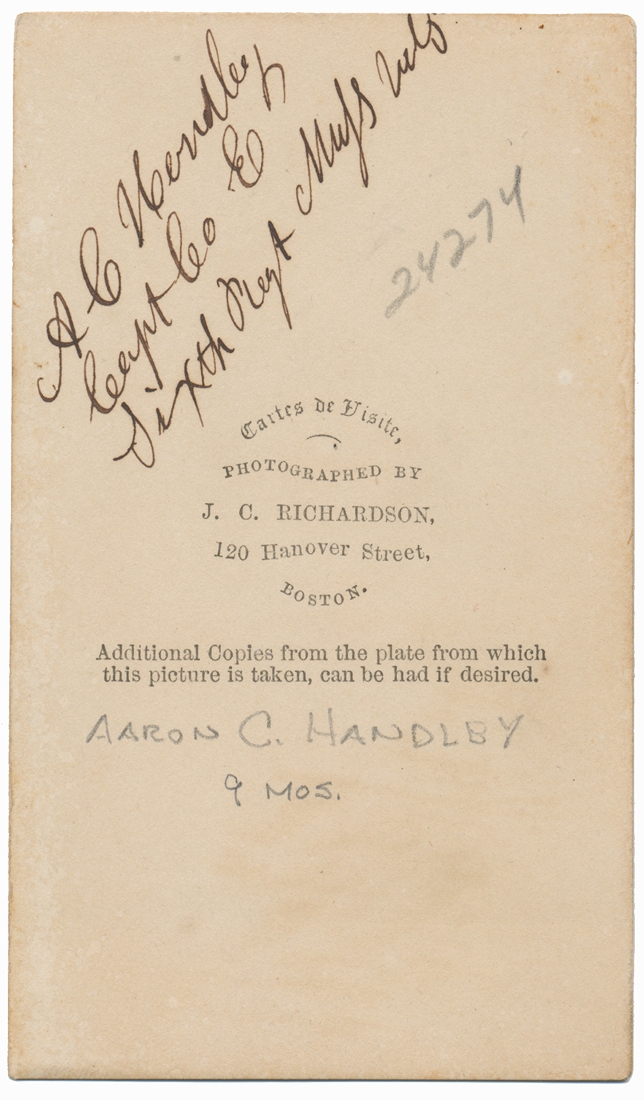 A C Hendley
Capt Co E
Sixth Regt Mass Vols
24274
Cartes de Visite,
PHOTOGRAPHED BY
J. C. RICHARDSON,
120 Hanover Street,
BOSTON.
Additional Copies from the plate from which
this picture is taken, can be had if desired.
AARON C. HANDLEY
9 MOS.